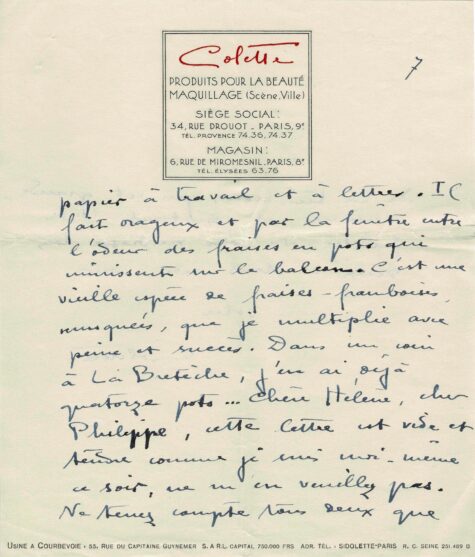 Colette
7
PRODUITS POUR LA BEAUTÉ
MAQUILLAGE (Scène, Ville)
SIÈGE SOCIAL:
34, RUE DROUOT - PARIS, 9e
TÉL. PROVENCE 74.36, 74.37
MAGASIN:
6, RUE DE MIROMESNIL, PARIS, 8e
TÉL. ÉLYSÉES 63.76
papier à travail et à lettres. Il
fait orageux et par la fenêtre entre
l'odeur des fraises en pots qui
mûrissent sur le balcon. C'est une
vieille espèce de fraises-framboises,
musquées, que je multiplie avec
peine et succès. Dans un coin
à La Bretèche, j'en ai déjà
quatorze pots... Chère Hélène, cher
Philippe, cette lettre est vide et
tendre comme je suis moi-même
ce soir, ne m'en veuillez pas.
Ne tenez compte tous deux que
USINE A COURBEVOIE - 55, RUE DU CAPITAINE GUYNEMER S.A.R.L. CAPITAL 750.000 FRS ADR. TÉL. - SIDOLETTE-PARIS R. C. SEINE 251.489 B